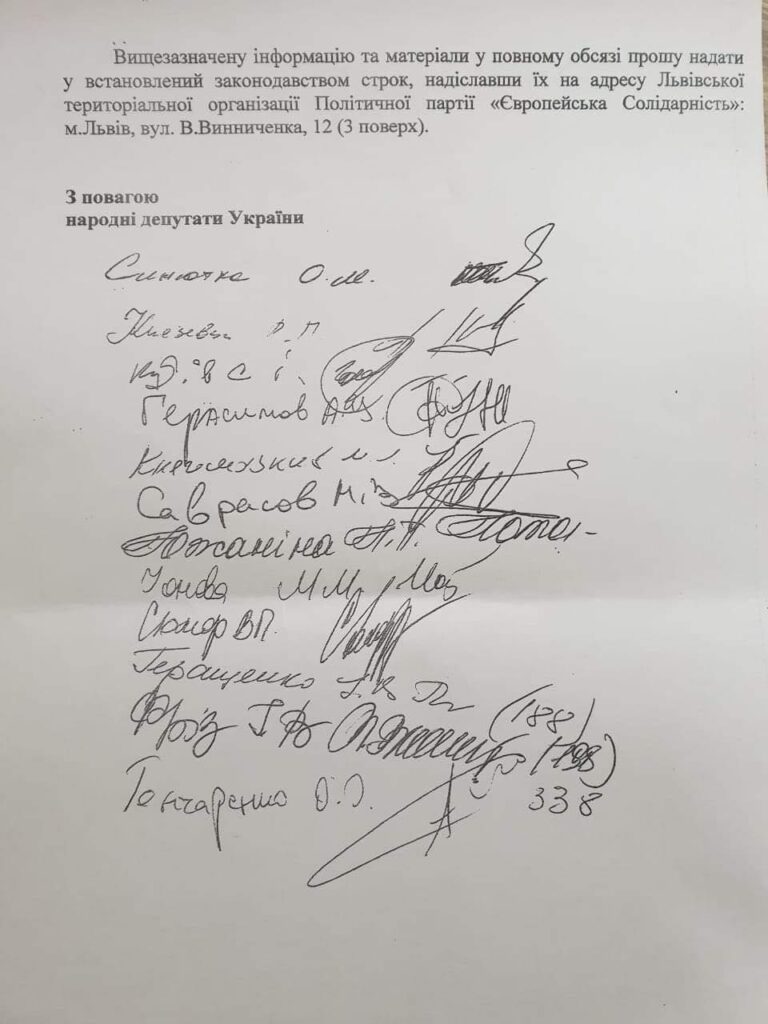 Вищезазначену інформацію та матеріали у повному обсязі прошу надати
у встановлений законодавством строк, надіславши їх на адресу Львівської
територіальної організації Політичної партії «Європейська Солідарність»:
м.Львів, вул. В.Винниченка, 12 (3 поверх).
З повагою
народні депутати України
Синютка О.М.
Герасимов А.
Саврасов М.В.
Южаніна Н.П.
Іонова М.М.
Сюмар В.П.
Геращенко І.В.
Фріз І В (188)
(198)
Гончаренко О.О. 338